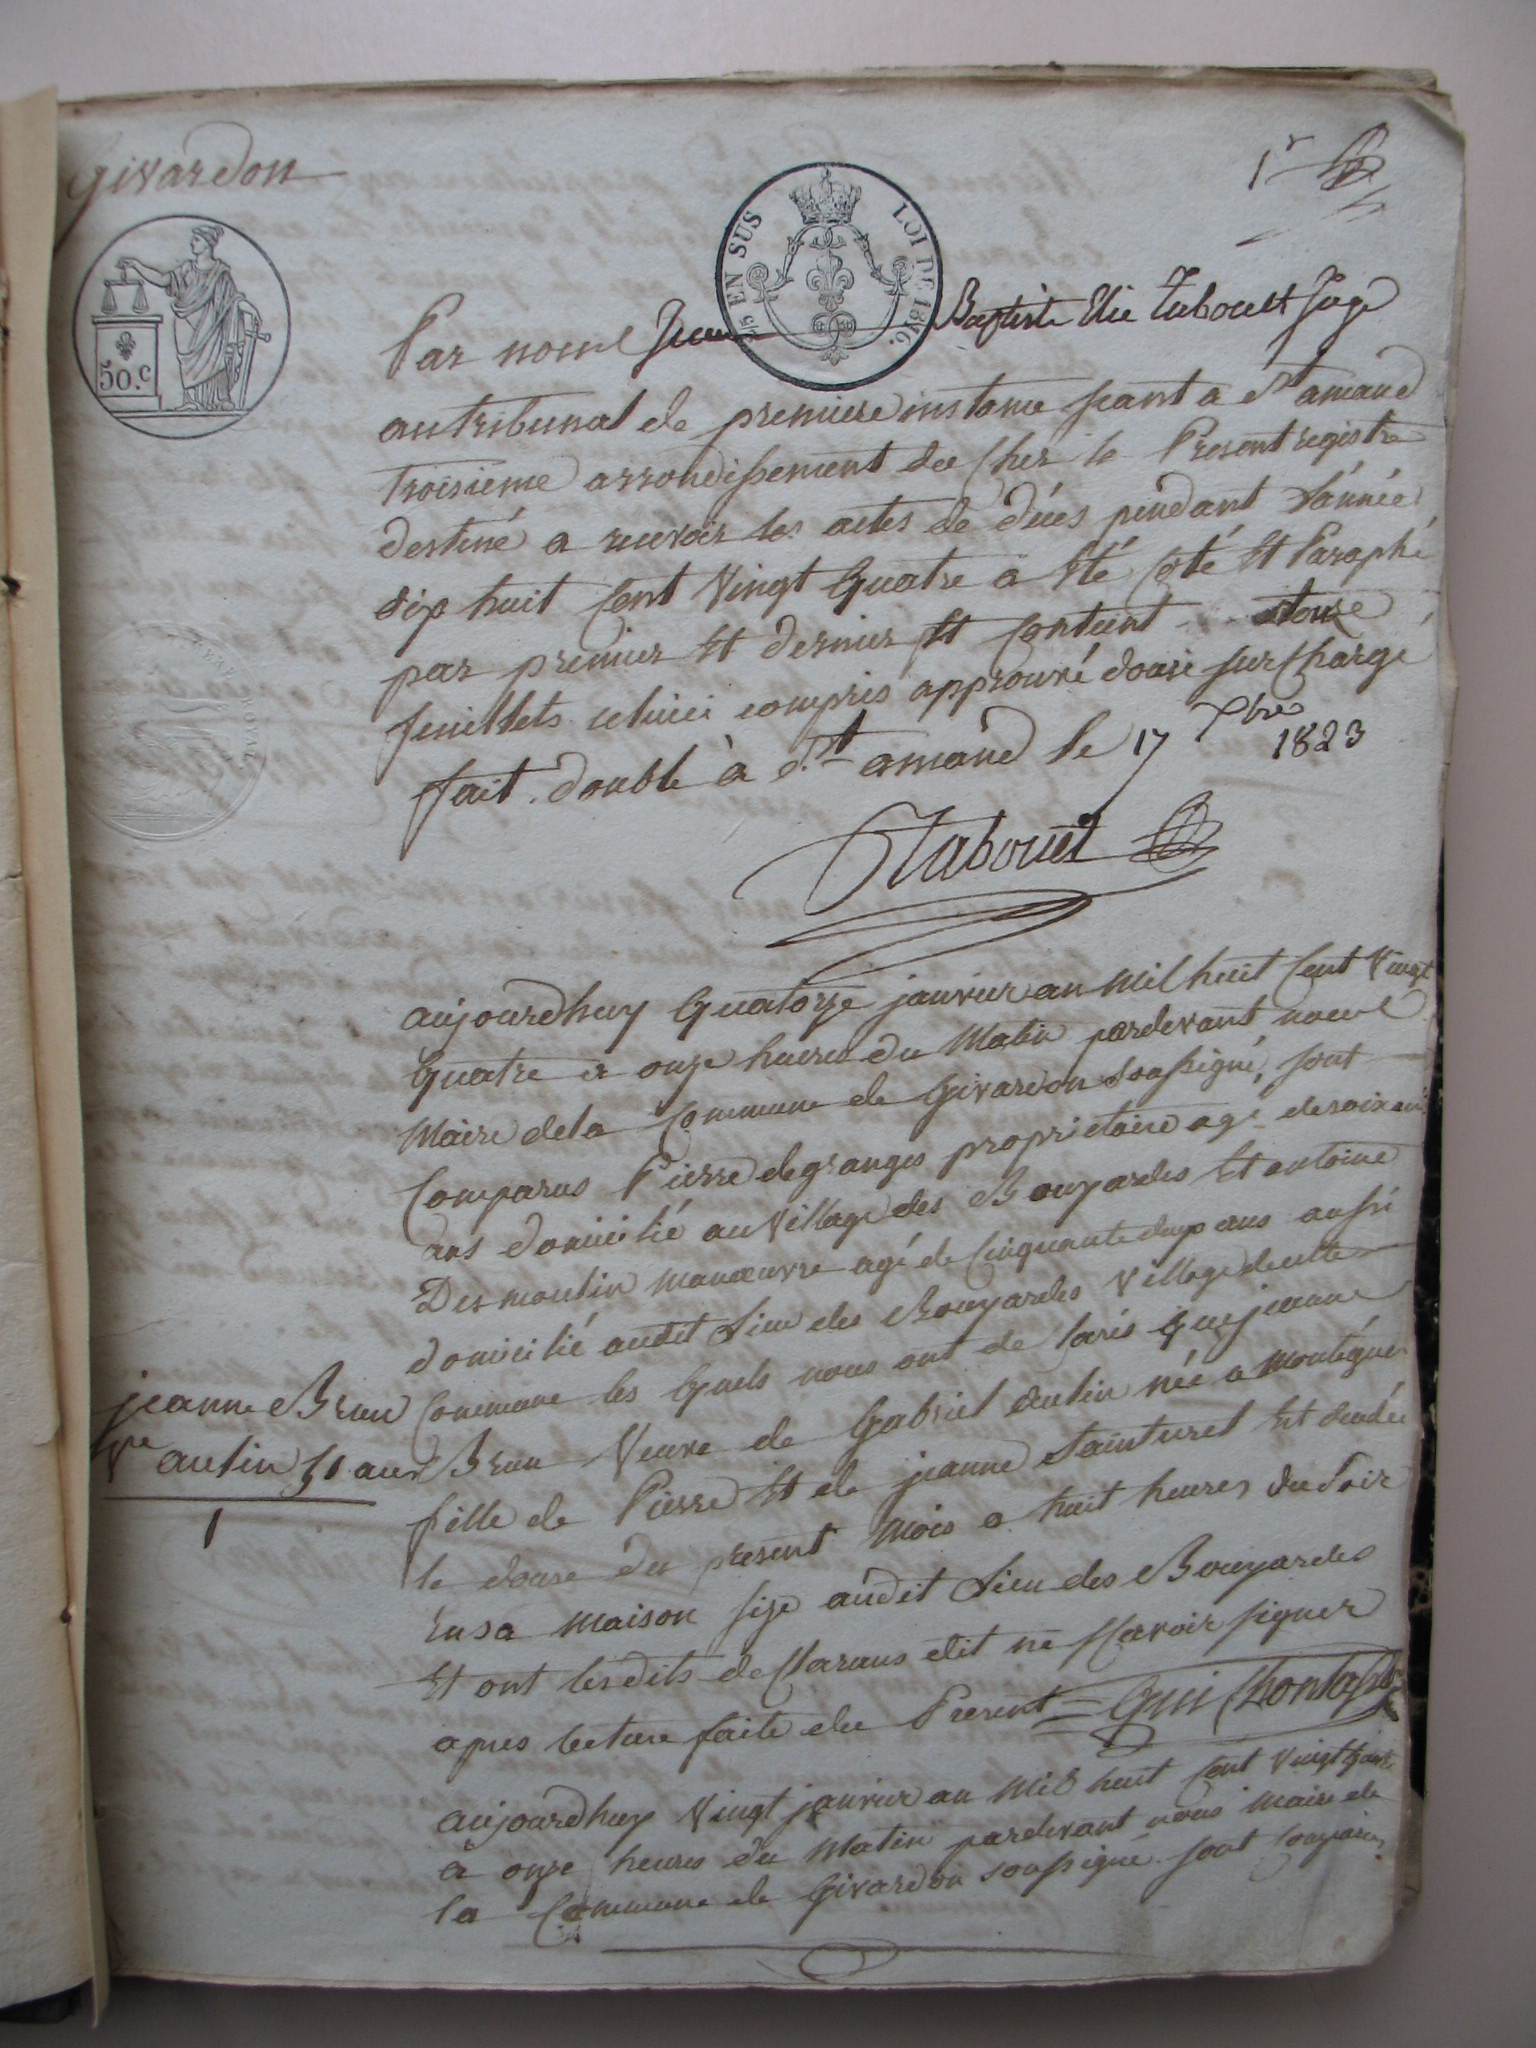 Givardon
1r
5 EN SUS LOI DE 1816.
50.c
Par nous Jean Baptiste Elie Tabouet Juge
au tribunal de premiere instance seant a St amand
troisieme arrondissement du Cher le Present registre
destiné a recevoir les actes de décés pendant L'année
dix huit Cent Vingt Quatre a Eté Coté Et Paraphé
par premier Et dernier Et Contient douze
feuillets celuici compris approuvé douze surchargé
fait double à St amand le 17 Xbre 1823
Tabouet
aujourdhuy Quatorze janvier an Mil huit Cent Vingt
Quatre a onze heures du Matin pardevant nous
Maire de la Commune de Givardon soussigné, sont
Comparus Pierre degranges proprietaire agé de soixante
ans domicilié au Village des Bouyardes Et antoine
Desmoulin manœuvre agé de Cinquante deux ans aussi
domicilié audit Lieu des Bouyardes Village de cette
Commune les Quels nous ont declaré Que jeanne
Brun Veuve de Gabriel autin née a Montégner
fille de Pierre Et de jeanne Sainturel Et decédée
le douze du present mois a huit heures du Soir
En sa maison size audit Lieu des Bouyardes
Et ont lesdits declarans dit ne Scavoir signer
apres lecture faite du Present =
jeanne Brun
Ve autin 51 ans
1
aujourdhuy Vingt janvier an Mil huit Cent Vingt Quatre
a onze heures du Matin pardevant nous maire de
la Commune de Givardon soussigné sont Comparus